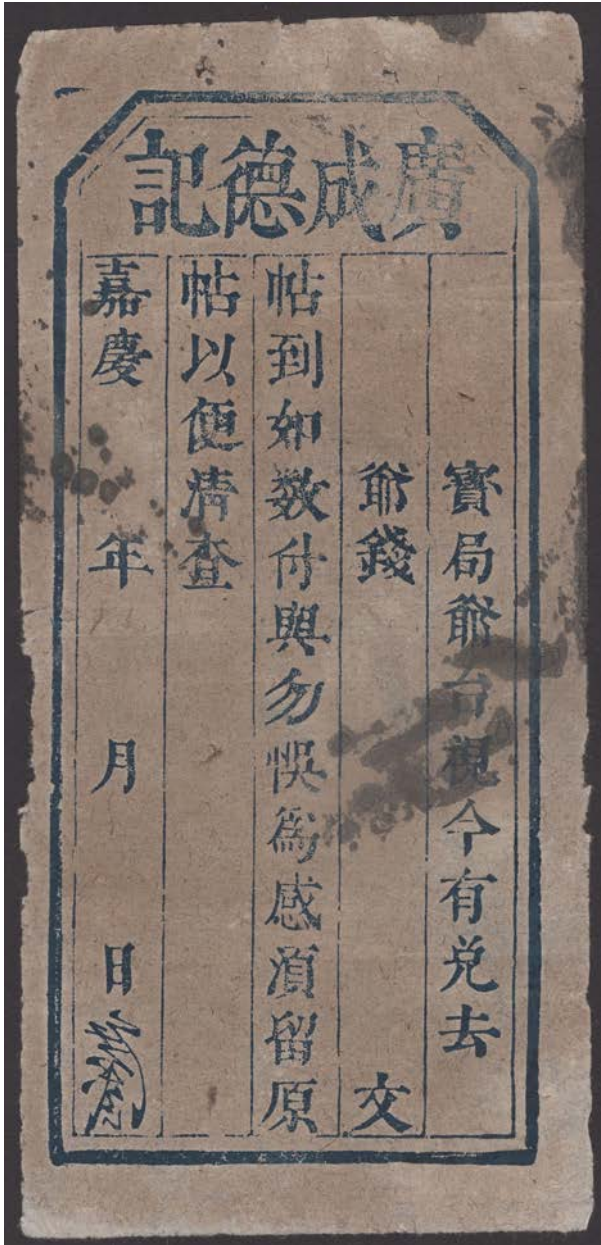 廣成德記
寳局爺台視今有兌去
爺錢 文
帖到如数付與勿悮爲感湏留原
帖以便淸查
嘉慶 年 月 日